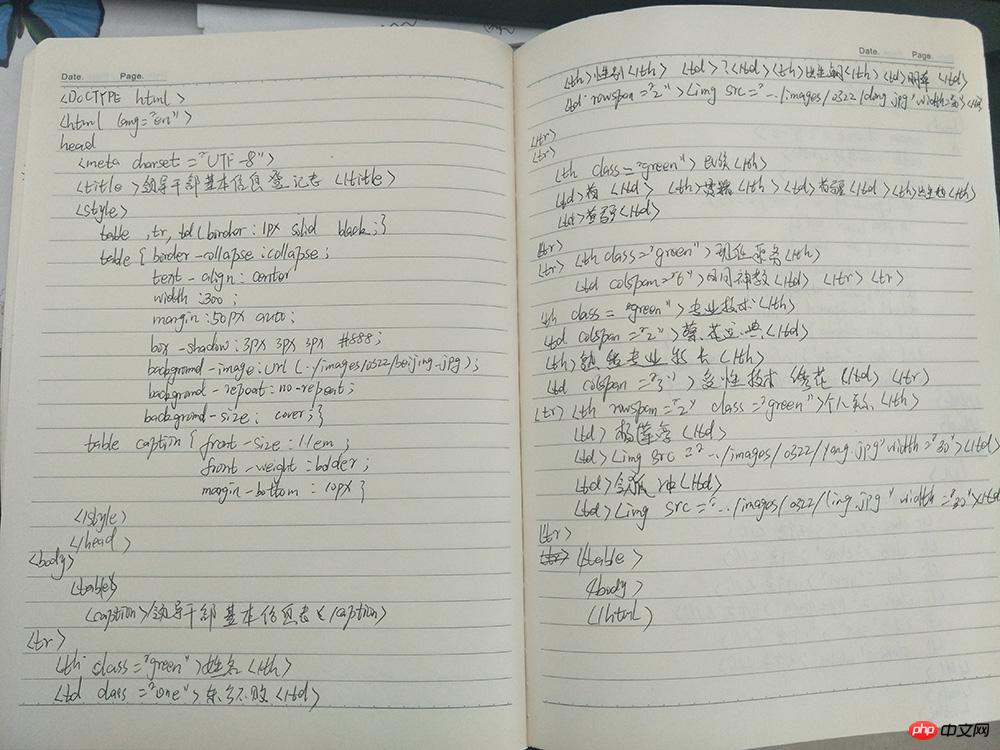 Date. Page.
<DOCTYPE html>
<html lang="en">
head
<meta charset="UTF-8">
<title>领导干部基本信息登记表</title>
<style>
table ,tr, td{border:1px solid black;}
table { border-collapse:collapse;
text-align:center
width:300;
margin:50px auto;
box-shadow:3px 3px 3px #888;
background-image:url(../images/0322/beijing.jpg);
background-repeat:no-repeat;
background-size: cover;}
table caption{ front-size:1.1em;
front-weight:bolder;
margin-bottom:10px}
</style>
</head>
<body>
<table>
<caption>领导干部基本信息表</caption>
<tr>
<th class="green">姓名</th>
<td class="one">东方不败</td>
Date. Page
<th>性别</th> <td>?</td><th>出生年月</th><td>明年</td>
<td rowspan="2"><img src="../images/0322/dong.jpg" width="30"></td>
</tr>
<tr>
<th class="green">民族</th>
<td>苗</td> <th>籍贯</th><td>苗疆</td><th>出生地</th>
<td>苗疆</td>
</tr>
<tr> <th class="green">现任职务</th>
<td colspan="6">日月神教</td> </tr> <tr>
<th class="green">专业技术</th>
<td colspan="2">葵花宝典</td>
<th>熟悉专业 特长</th>
<td colspan="3">女性技术 绣花</td></tr>
<tr><th rowspan="2" class="green">个人关系</th>
<td>杨莲亭</td>
<td><img src="../images/0322/yang.jpg" width="30"></td>
<td>令狐冲</td>
<td><img src="../images/0322/ling.jpg" width="30"></td>
</tr>
</table>
</body>
</html>
php 中文网